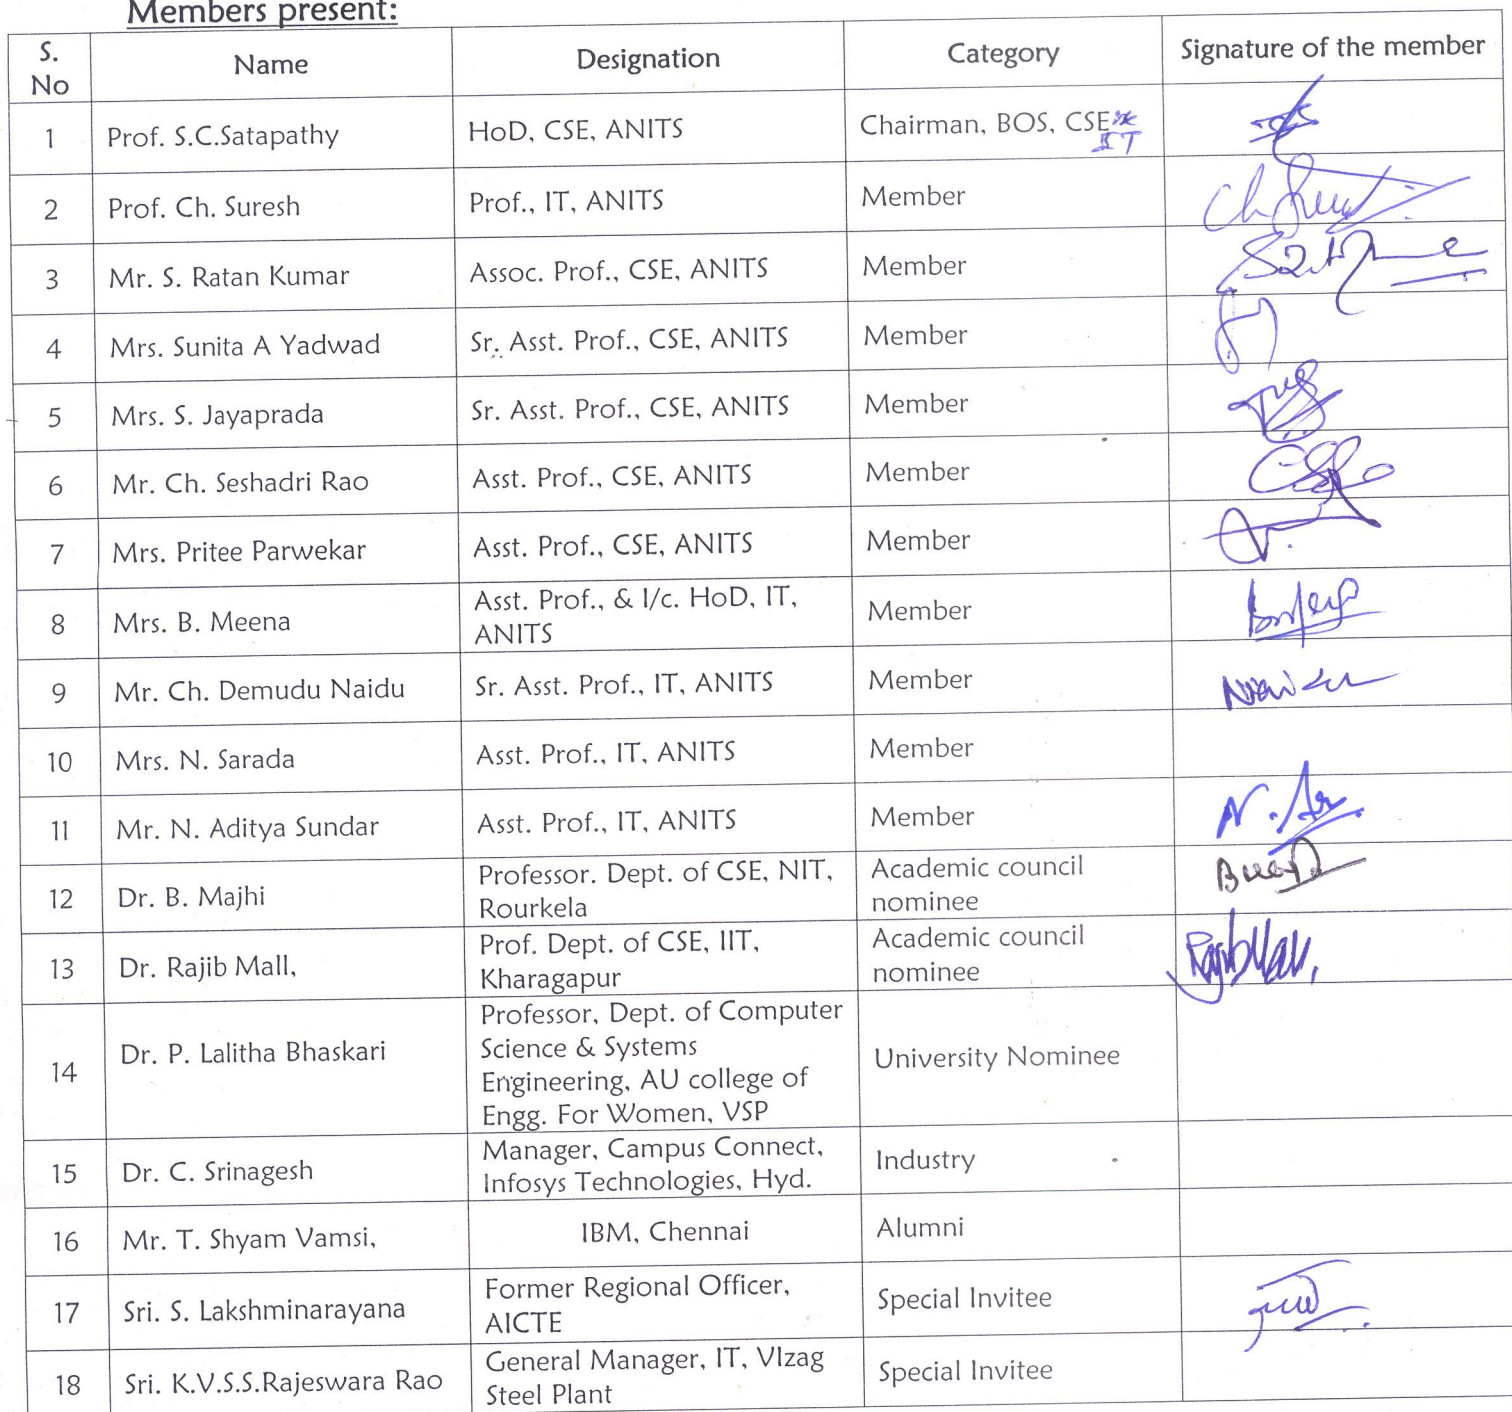 Members present:
S. No Name Designation Category Signature of the member
1 Prof. S.C.Satapathy HoD, CSE, ANITS Chairman, BOS, CSE
IT
2 Prof. Ch. Suresh Prof., IT, ANITS Member
3 Mr. S. Ratan Kumar Assoc. Prof., CSE, ANITS Member
4 Mrs. Sunita A Yadwad Sr. Asst. Prof., CSE, ANITS Member
5 Mrs. S. Jayaprada Sr. Asst. Prof., CSE, ANITS Member
6 Mr. Ch. Seshadri Rao Asst. Prof., CSE, ANITS Member
7 Mrs. Pritee Parwekar Asst. Prof., CSE, ANITS Member
8 Mrs. B. Meena Asst. Prof., & I/c. HoD, IT,
ANITS Member
9 Mr. Ch. Demudu Naidu Sr. Asst. Prof., IT, ANITS Member
10 Mrs. N. Sarada Asst. Prof., IT, ANITS Member
11 Mr. N. Aditya Sundar Asst. Prof., IT, ANITS Member
12 Dr. B. Majhi Professor. Dept. of CSE, NIT,
Rourkela Academic council
nominee
13 Dr. Rajib Mall, Prof. Dept. of CSE, IIT,
Kharagapur Academic council
nominee
14 Dr. P. Lalitha Bhaskari Professor, Dept. of Computer
Science & Systems
Engineering, AU college of
Engg. For Women, VSP University Nominee
15 Dr. C. Srinagesh Manager, Campus Connect,
Infosys Technologies, Hyd. Industry
16 Mr. T. Shyam Vamsi, IBM, Chennai Alumni
17 Sri. S. Lakshminarayana Former Regional Officer,
AICTE Special Invitee
18 Sri. K.V.S.S.Rajeswara Rao General Manager, IT, VIzag
Steel Plant Special Invitee